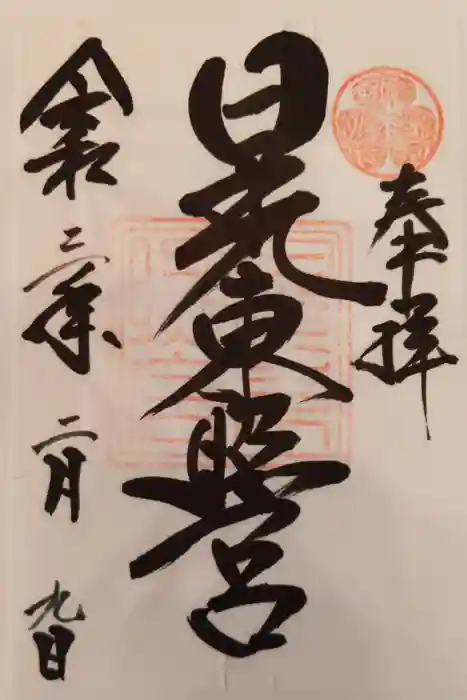 奉拝
日光東照宮
令和三年
二月
九日